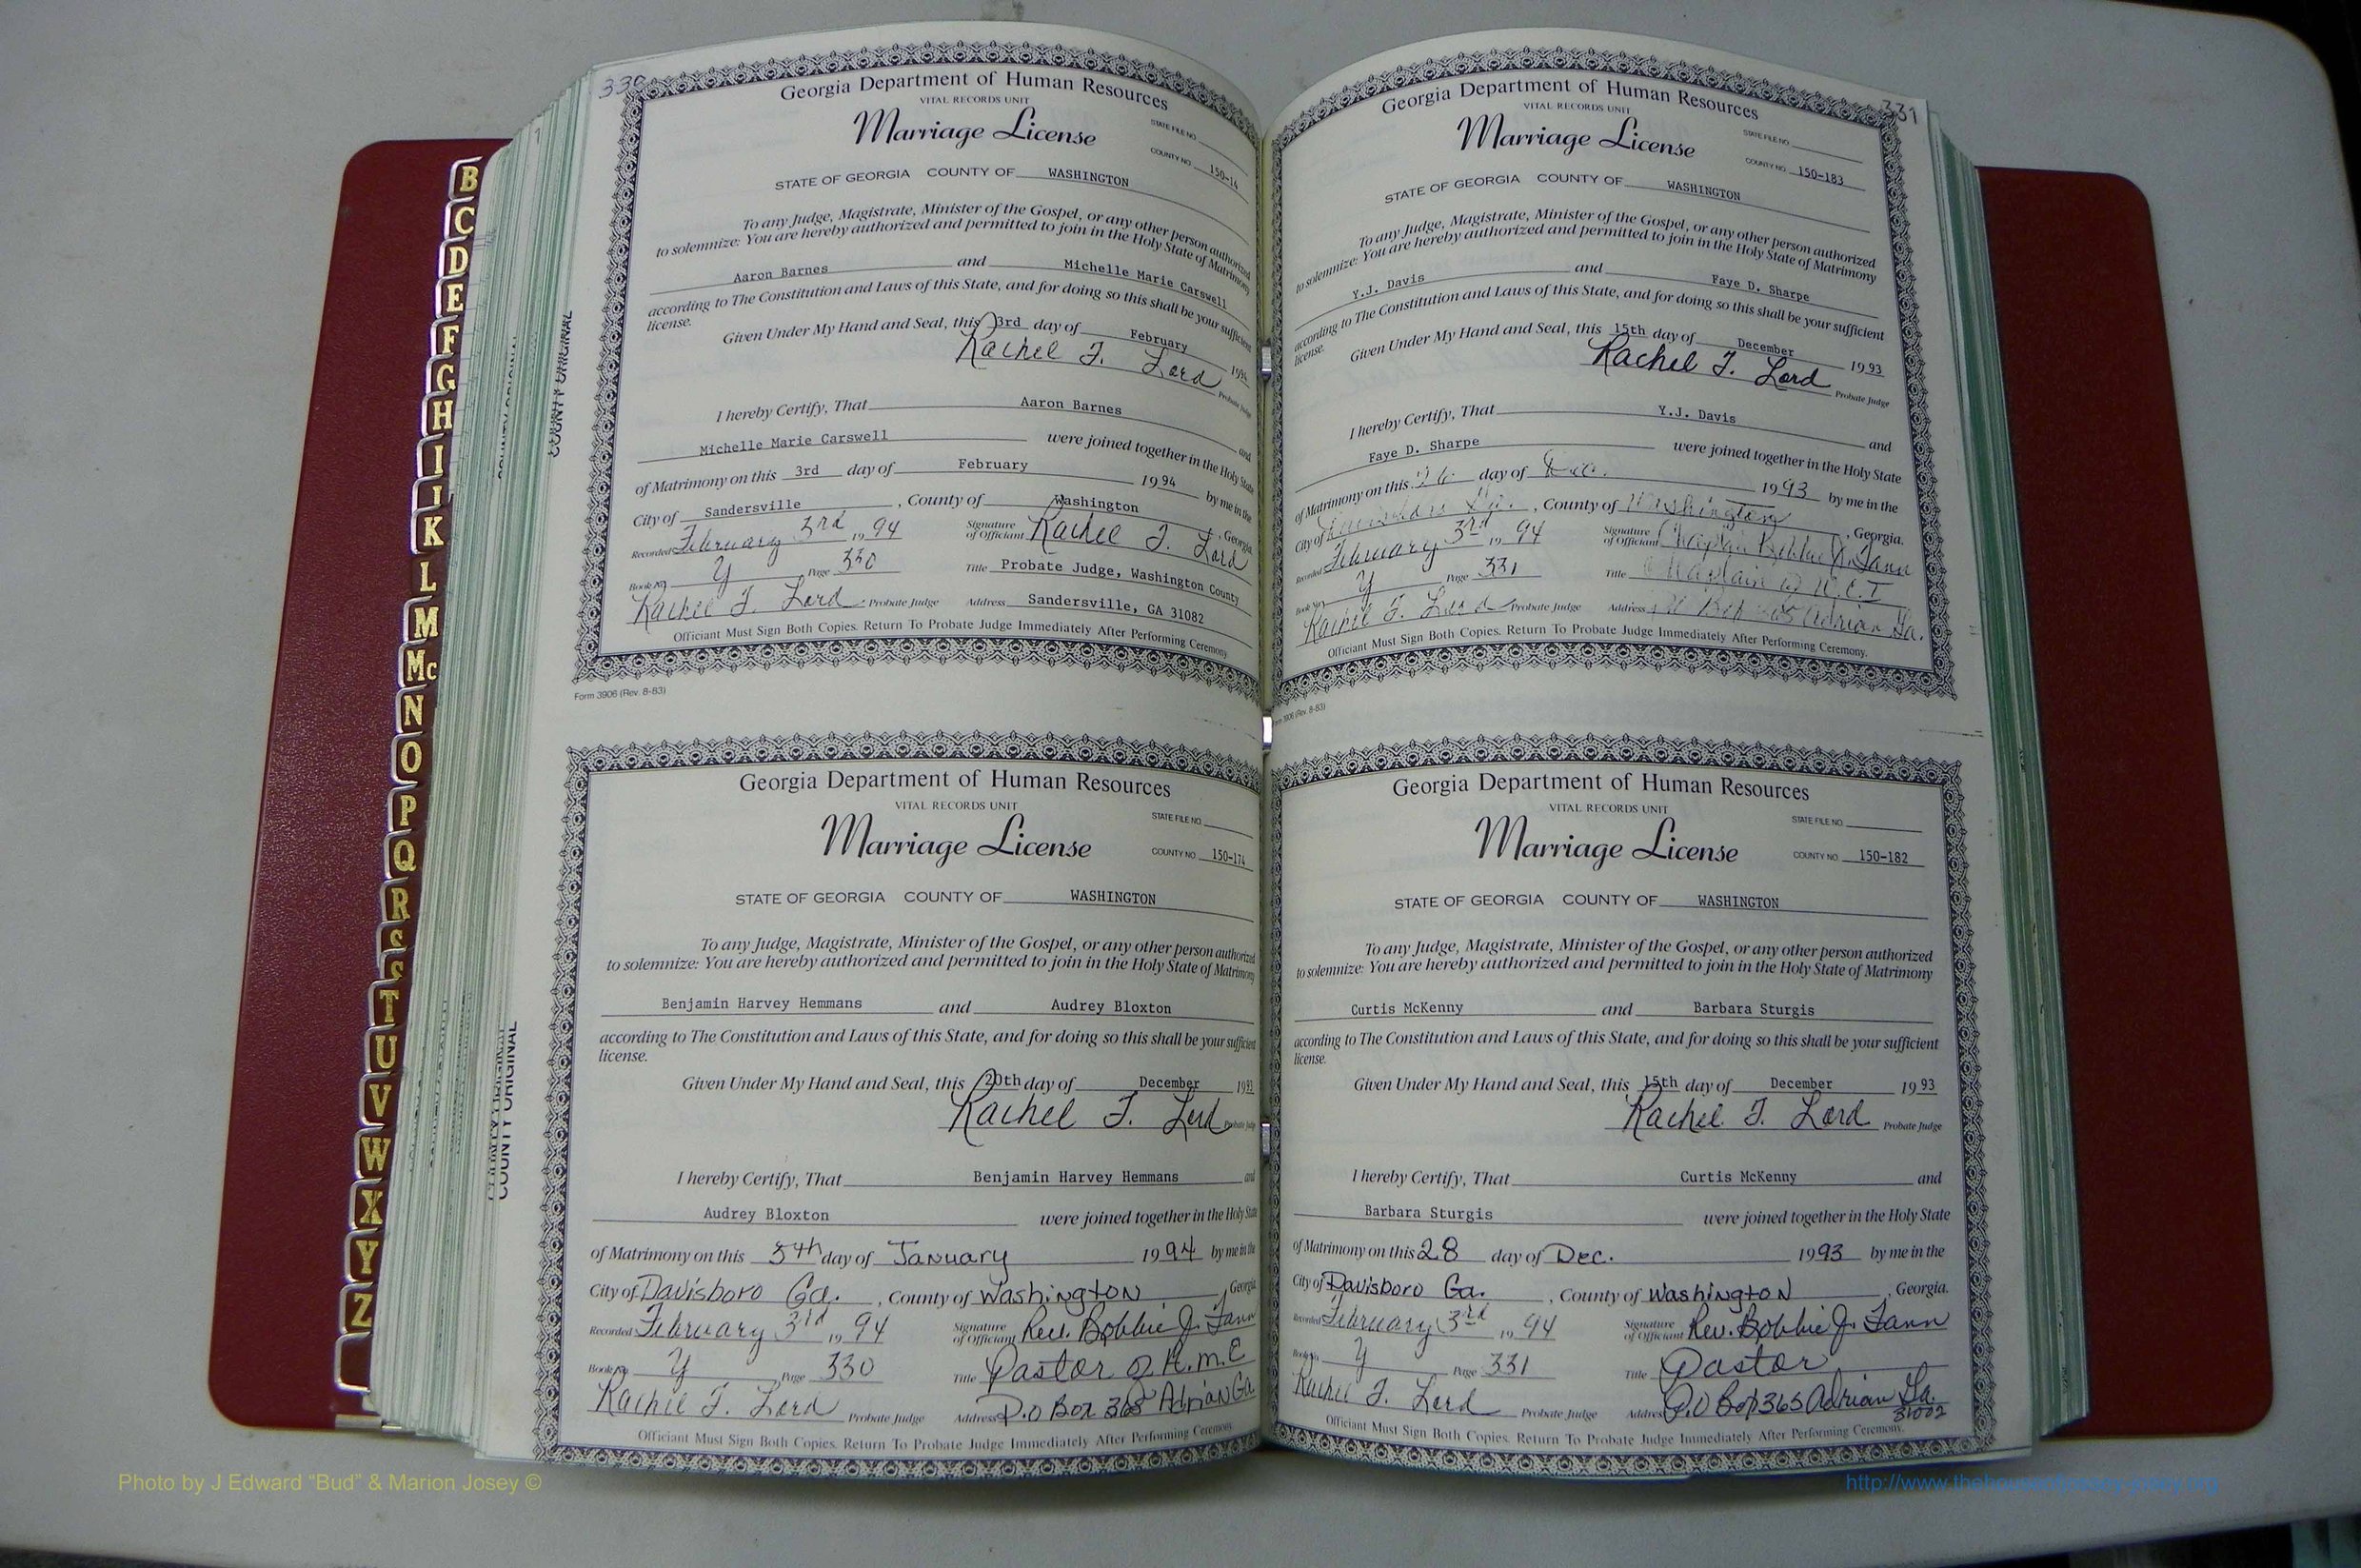 330
Georgia Department of Human Resources
VITAL RECORDS UNIT
Marriage License
STATE FILE NO.
COUNTY NO.
STATE OF GEORGIA COUNTY OF WASHINGTON
To any Judge, Magistrate, Minister of the Gospel, or any other person authorized
to solemnize: You are hereby authorized and permitted to join in the Holy State of Matrimony
Aaron Barnes and Michelle Marie Carswell
according to The Constitution and Laws of this State, and for doing so this shall be your sufficient
license.
Given Under My Hand and Seal, this 3rd day of February
Rachel F. Lord Probate Judge
I hereby Certify, That Aaron Barnes and
Michelle Marie Carswell were joined together in the Holy State
of Matrimony on this 3rd day of February 1994 by me in the
City of Sandersville, County of Washington, Georgia.
Recorded February 3rd, 1994 Signature of Officiant Rachel F. Lord
Book No. Y Page 330 Title Probate Judge, Washington County
Rachel F. Lord Probate Judge Address Sandersville, GA 31082
Officiant Must Sign Both Copies. Return To Probate Judge Immediately After Performing Ceremony
Form 3906 (Rev. 8-83)
Georgia Department of Human Resources
VITAL RECORDS UNIT
Marriage License
STATE FILE NO.
COUNTY NO. 150-174
STATE OF GEORGIA COUNTY OF WASHINGTON
To any Judge, Magistrate, Minister of the Gospel, or any other person authorized
to solemnize: You are hereby authorized and permitted to join in the Holy State of Matrimony
Benjamin Harvey Hemmans and Audrey Bloxton
according to The Constitution and Laws of this State, and for doing so this shall be your sufficient
license.
Given Under My Hand and Seal, this 20th day of December 1993
Rachel F. Lord Probate Judge
I hereby Certify, That Benjamin Harvey Hemmans and
Audrey Bloxton were joined together in the Holy State
of Matrimony on this 5th day of January 1994 by me in the
City of Davisboro Ga., County of Washington, Georgia
Recorded February 3rd, 1994 Signature of Officiant Rev. Bobbie J. Fann
Book No. Y Page 330 Title Pastor
Rachel F. Lord Probate Judge Address P.O Box 365 Adrian Ga
Officiant Must Sign Both Copies. Return To Probate Judge Immediately After Performing Ceremony.
331
Georgia Department of Human Resources
VITAL RECORDS UNIT
Marriage License
STATE FILE NO.
COUNTY NO. 150-183
STATE OF GEORGIA COUNTY OF WASHINGTON
To any Judge, Magistrate, Minister of the Gospel, or any other person authorized
to solemnize: You are hereby authorized and permitted to join in the Holy State of Matrimony
Y.J. Davis and Faye D. Sharpe
according to The Constitution and Laws of this State, and for doing so this shall be your sufficient
license.
Given Under My Hand and Seal, this 15th day of December 1993
Rachel F. Lord Probate Judge
I hereby Certify, That Y.J. Davis and
Faye D. Sharpe were joined together in the Holy State
of Matrimony on this day of Dec. 1993 by me in the
City of, County of Washington, Georgia.
Recorded February 3rd 1994 Signature of Officiant Chaplain Bobbie J. Fann
Book No. Y Page 331 Title Chaplain W.C.I
Rachel F. Lord Probate Judge Address Adrian Ga.
Officiant Must Sign Both Copies. Return To Probate Judge Immediately After Performing Ceremony.
Form 3906 (Rev. 8-83)
Georgia Department of Human Resources
VITAL RECORDS UNIT
Marriage License
STATE FILE NO.
COUNTY NO. 150-182
STATE OF GEORGIA COUNTY OF WASHINGTON
To any Judge, Magistrate, Minister of the Gospel, or any other person authorized
to solemnize: You are hereby authorized and permitted to join in the Holy State of Matrimony
Curtis McKenny and Barbara Sturgis
according to The Constitution and Laws of this State, and for doing so this shall be your sufficient
license.
Given Under My Hand and Seal, this 15th day of December 1993
Rachel F. Lord Probate Judge
I hereby Certify, That Curtis McKenny and
Barbara Sturgis were joined together in the Holy State
of Matrimony on this 28 day of Dec. 1993 by me in the
City of Davisboro Ga., County of Washington, Georgia.
Recorded February 3rd, 1994 Signature of Officiant Rev. Bobbie J. Fann
Book No. Y Page 331 Title Pastor
Rachel F. Lord Probate Judge Address P.O Box 365 Adrian Ga.
31002
Officiant Must Sign Both Copies. Return To Probate Judge Immediately After Performing Ceremony.
COUNTY ORIGINAL
COUNTY ORIGINAL
B
C
D
E
F
G
H
I
J
K
L
M
Mc
N
O
P
Q
R
S
T
U
V
W
X
Y
Z
Photo by J Edward “Bud” & Marion Josey ©
http://www.thehouseofjossey-josey.org